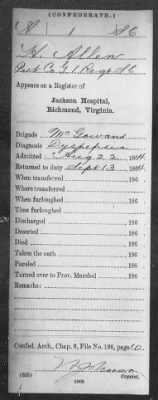 (CONFEDERATE.)
A 1 SC
H. Allen
Pvt Co. G, 1 Regt SC
Appears on a Register of
Jackson Hospital,
Richmond, Virginia.
Brigade McGowans
Diagnosis Dyspepsia
Admitted Aug 22 1864
Returned to duty Sept 13 1864
When transferred 186
Where transferred
When furloughed 186
Time furloughed
Discharged 186
Deserted 186
Died 186
Taken by the Oath 186
Paroled 186
Turned over to Prov. Marshal 186
Remarks:
Confed. Arch., Chap. 6, File No. 186, page
Copyist.